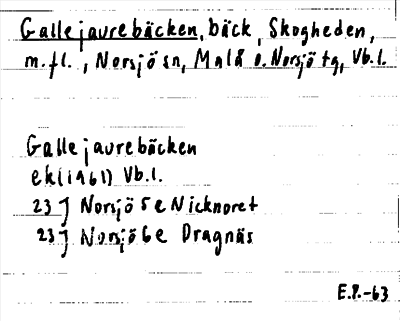 Gallejaurebäcken, bäck, Skogheden,
m.fl., Norsjö sn, Malå o. Norsjö tg, Vb.l.
Gallejaurebäcken
ek (1961) Vb.l.
23J Norsjö 5e Nicknoret
23J Norsjö 6e Dragnäs
E.P.-63